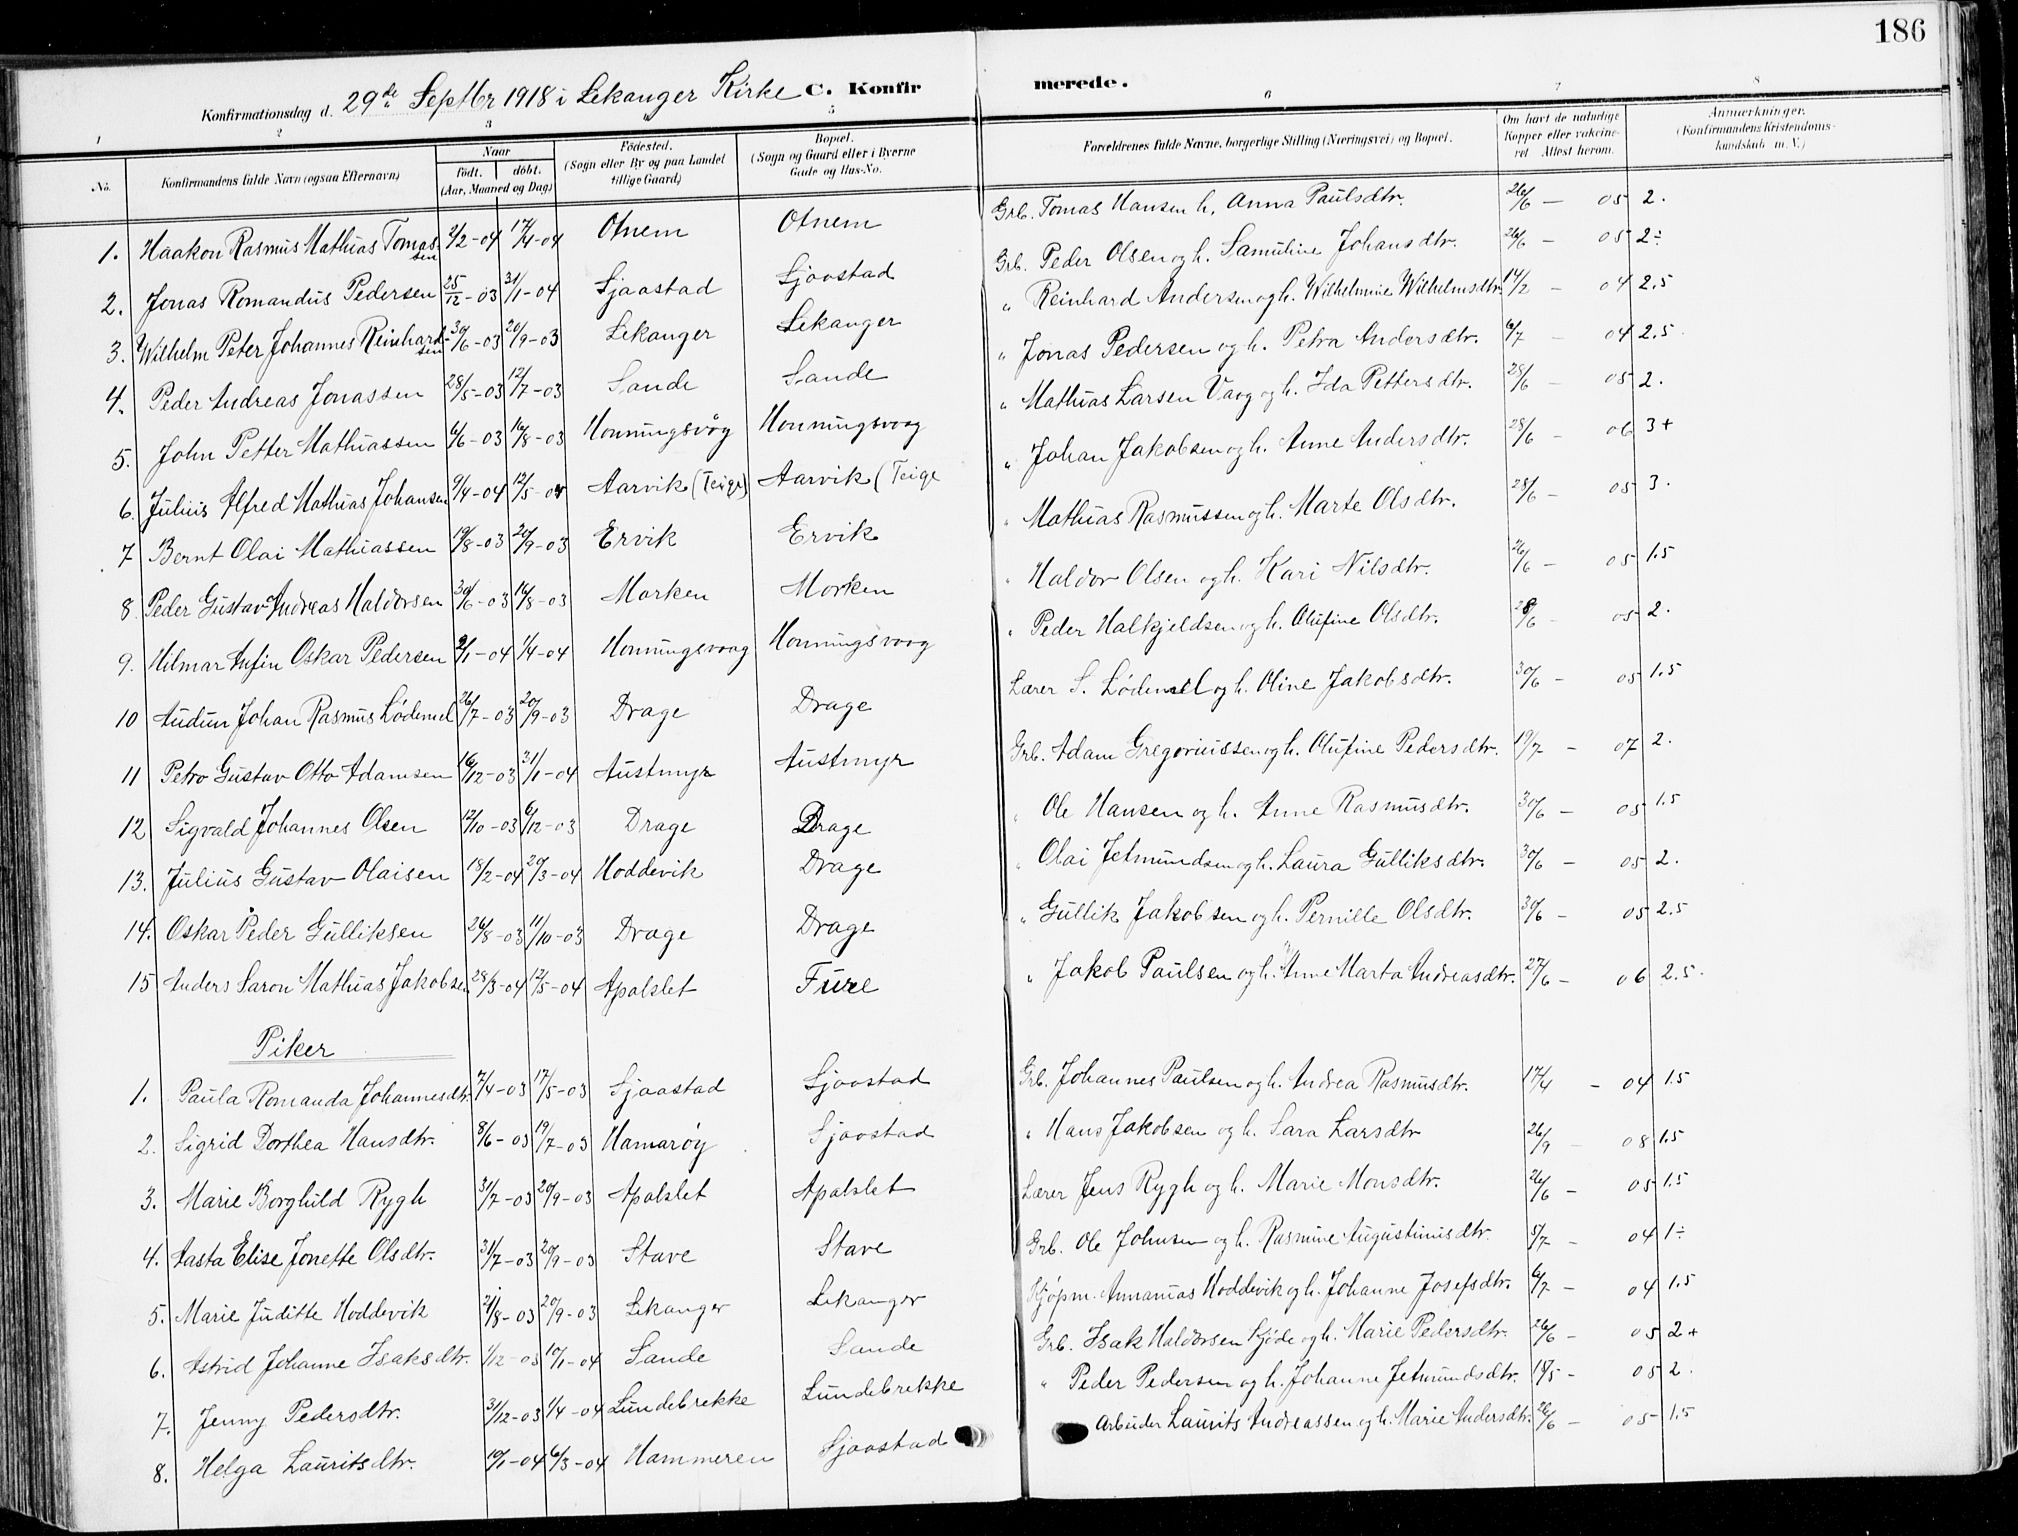 186
Konfirmationsdag d. 29de Septbr 1918 i Lekanger Kirke C. Konfirmerede.
1 2 3 4 5 6 7 8
No. Konfirmandens fulde Navn (ogsaa Efternavn) Naar født. døbt. (Aar, Maaned og Dag) Fødested. (Sogn eller By og paa Landet tillige Gaard) Bopæl. (Sogn og Gaard eller i Byerne Gade og Hus-No. Forældrenes fulde Navne, borgerlige Stilling (Næringsvei) og Bopæl. Om havt de naturlige Kopper eller vakcineret Attest herom. Anmærkninger. (Konfirmandens Kristendomskundskab m. V.)
1. Haakon Rasmus Mathias Tomassen 2/2-04 17/4-04 Otnem Otnem Grb. Tomas Hansen h. Anna Paulsdtr. 26/6 - 05 2.
2. Jonas Romandus Pedersen 25/12-03 31/1-04 Sjaastad Sjaastad Grb. Peder Olsen og h. Samuline Johansdtr. 26/6 - 05 2÷
3. Wilhelm Peter Johannes Reinhardsen 30/6-03 20/9-03 Lekanger Lekanger " Reinhard Andersen og h. Wilhelmine Wilhelmsdtr. 14/2 - 04 2.5
4. Peder Andreas Jonassen 28/5-03 12/7-03 Sande Sande " Jonas Pedersen og h. Petra Andersdtr. 6/7 - 04 2.5
5. John Petter Mathiassen 6/6-03 16/8-03 Honningsvåg Honningsvaag " Mathias Larsen Vaag og h. Ida Pettersdtr. 28/6 - 05 2.
6. Julius Alfred Mathias Johansen 9/4-04 12/5-04 Aarvik (Teige) Aarvik (Teige " Johan Jakobsen og h. Anne Andersdtr. 28/6 - 06 3+
7 Bernt Olai Mathiassen 19/8-03 20/9-03 Ervik Ervik " Mathias Rasmussen og h. Marte Olsdtr. 28/6 - 05 3.
8. Peder Gustav Andreas Haldorsen 30/6-03 16/8-03 Morken Morken " Haldor Olsen og h. Kari Nilsdtr. 26/6 - 05 1.5
9. Hilmar Anfin Oskar Pedersen 2/1-04 1/4-04 Honningsvaag Honningsvaag " Peder Halkjeldsen og h. Olufine Olsdtr. 28/6 - 05 2.
10 Audun Johan Rasmus Lødemel 26/7-03 20/9-03 Drage Drage Lærer S. Lødemel og h. Oline Jakobsdtr. 30/6 - 05 1.5
11 Petro Gustav Otto Adamsen 16/12-03 31/1-04 Austmyr Austmyr Grb. Adam Gregoriussen og h. Olufine Pedersdtr. 19/7 - 07 2.
12 Sigvald Johannes Olsen 12/10-03 6/12-03 Drage Drage " Ole Hansen og h. Anne Rasmusdtr. 30/6 - 05 1.5
13. Julius Gustav Olaisen 18/2-04 20/3-04 Hoddevik Drage " Olai Jetmundsen og h. Laura Gulliksdtr. 30/6 - 05 2.
14. Oskar Peder Gulliksen 26/8-03 11/10-03 Drage Drage " Gullik Jakobsen og h. Pernille Olsdtr. 30/6 - 05 2.5
15 Anders Saron Mathias Jakobsen 28/3-04 12/5-04 Apalslet Fure " Jakob Paulsen og h. Anne Marta Andreasdtr. 27/6 - 06 2.5.
Piker
1. Paula Romanda Johannesdtr. 7/4-03 17/5-03 Sjaastad Sjaastad Grb. Johannes Paulsen og h. Andrea Rasmusdtr. 17/4 - 04 1.5
2. Sigrid Dorthea Hansdtr. 8/6-03 19/7-03 Hamarøy Sjaastad " Hans Jakobsen og h. Sara Larsdtr 26/9 - 08 1.5
3. Marie Borghild Rygh 31/7-03 20/9-03 Apalslet Apalslet Lærer Jens Rygh og h. Marie Monsdtr. 26/6 - 05 1.5
4. Aasta Elise Jonette Olsdtr. 31/7-03 20/9-03 Stave Stave Grb. Ole Johnsen og h. Rasmine Augustinusdtr. 5/7 - 04 1÷
5. Marie Juditte Hoddevik 21/8-03 20/9-03 Lekanger Lekanger Kjøpm. Annanias Hoddevik og h. Johanne Josefsdtr. 6/7 - 04 1.5
6. Astrid Johanne Isaksdtr. 1/12-03 10/1-04 Sande Sande Grb. Isak Haldorsen Kjøde og h. Marie Pedersdtr. 26/6 - 05 2+
7. Jenny Pedersdtr. 31/12-03 1/4-04 Lundebrekke Lundebrekke " Peder Pedersen og h. Johanne Jetmundsdtr. 18/5 - 05 2.
8. Helga Lauritsdtr. 10/1-04 6/3-04 Hammeren Sjaastad Arbeider Laurits Andreassen og h. Marie Andersdtr. 26/6 - 05 1.5